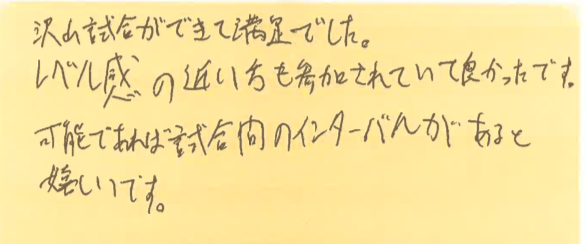 沢山試合ができて満足でした。
レベル感の近い方も参加されていて良かったです。
可能であれば試合間のインターバルがあると
嬉しいです。